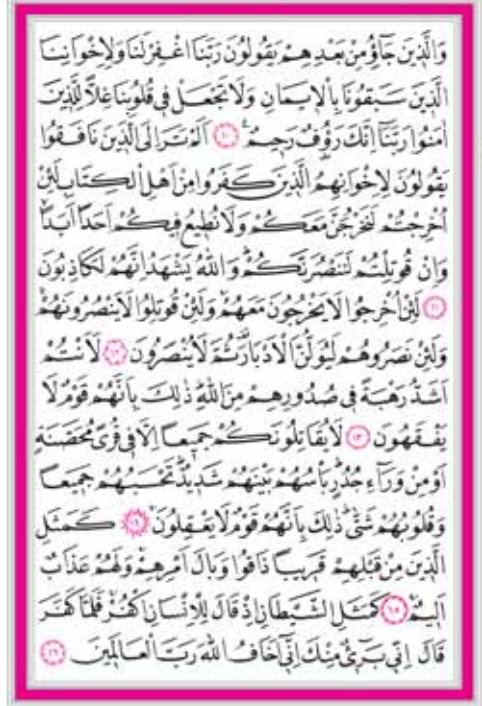 وَالَّذٖينَ جَاؤُ۫ مِنْ بَعْدِهِمْ يَقُولُونَ رَبَّنَا اغْفِرْ لَنَا وَلِاِخْوَانِنَا
الَّذٖينَ سَبَقُونَا بِالْاٖيمَانِ وَلَا تَجْعَلْ فٖى قُلُوبِنَا غِلًّا لِلَّذٖينَ
اٰمَنُوا رَبَّنَٓا اِنَّكَ رَؤُ۫فٌ رَحٖيمٌ ﴿١٠﴾ اَلَمْ تَرَ اِلَى الَّذٖينَ نَافَقُوا
يَقُولُونَ لِاِخْوَانِهِمُ الَّذٖينَ كَفَرُوا مِنْ اَهْلِ الْكِتَابِ لَئِنْ
اُخْرِجْتُمْ لَنَخْرُجَنَّ مَعَكُمْ وَلَا نُطٖيعُ فٖيكُمْ اَحَدًا اَبَدًا
وَاِنْ قُوتِلْتُمْ لَنَنْصُرَنَّكُمْ وَاللّٰهُ يَشْهَدُ اِنَّهُمْ لَكَاذِبُونَ
﴿١١﴾ لَئِنْ اُخْرِجُوا لَا يَخْرُجُونَ مَعَهُمْ وَلَئِنْ قُوتِلُوا لَا يَنْصُرُونَهُمْ
وَلَئِنْ نَصَرُوهُمْ لَيُوَلُّنَّ الْاَدْبَارَ ثُمَّ لَا يُنْصَرُونَ ﴿١٢﴾ لَاَنْتُمْ
اَشَدُّ رَهْبَةً فٖى صُدُورِهِمْ مِنَ اللّٰهِ ذٰلِكَ بِاَنَّهُمْ قَوْمٌ لَا
يَفْقَهُونَ ﴿١٣﴾ لَا يُقَاتِلُونَكُمْ جَمٖيعًا اِلَّا فٖى قُرًى مُحَصَّنَةٍ
اَوْ مِنْ وَرَٓاءِ جُدُرٍ بَاْسُهُمْ بَيْنَهُمْ شَدٖيدٌ تَحْسَبُهُمْ جَمٖيعًا
وَقُلُوبُهُمْ شَتّٰى ذٰلِكَ بِاَنَّهُمْ قَوْمٌ لَا يَعْقِلُونَ ﴿١٤﴾ كَمَثَلِ
الَّذٖينَ مِنْ قَبْلِهِمْ قَرٖيبًا ذَاقُوا وَبَالَ اَمْرِهِمْ وَلَهُمْ عَذَابٌ
اَلٖيمٌ ﴿١٥﴾ كَمَثَلِ الشَّيْطَانِ اِذْ قَالَ لِلْاِنْسَانِ اكْفُرْ فَلَمَّا كَفَرَ
قَالَ اِنّٖى بَرٖٓىءٌ مِنْكَ اِنّٖٓى اَخَافُ اللّٰهَ رَبَّ الْعَالَمٖينَ ﴿١٦﴾